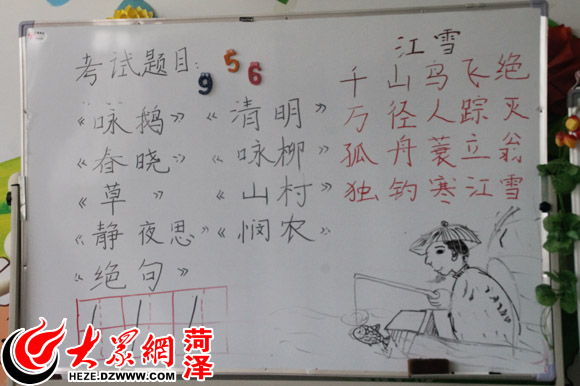 考试题目:
9 5 6
《咏鹅》 《清明》
《春晓》 《咏柳》
《草》 《山村》
《静夜思》 《悯农》
《绝句》
江雪
千山鸟飞绝
万径人踪灭
孤舟蓑立翁
独钓寒江雪
大眾網 菏泽
HEZE.DZWWW.COM